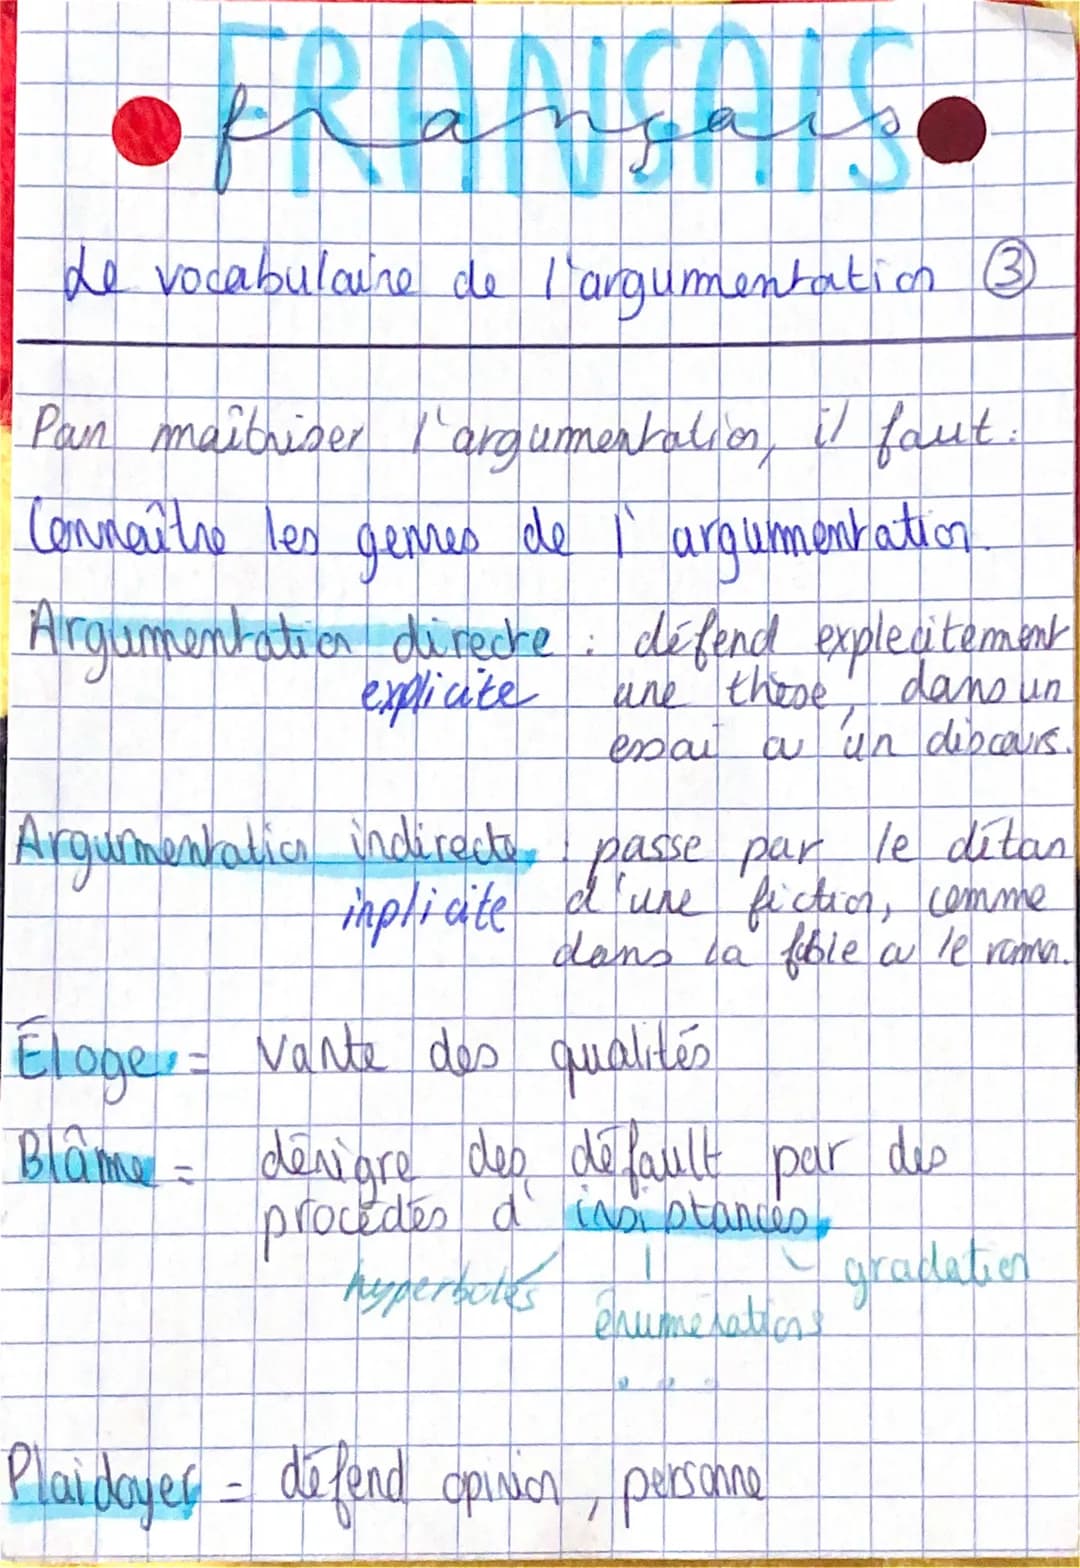 FRANÇAIS
français
Le vocabulaire de l'argumentation ③
Pour maîtriser l'argumentation, il faut :
Connaître les genres de l'argumentation.
Argumentation directe : défend explecitement
explicite une thèse, dans un
essai ou un discours.
Argumentation indirecte : passe par le détour
inplicite d'une fiction, comme
dans la fable ou le roman.
Éloge = vante des qualités
Blâme = dénigre des défault par des
procédés d'insistances
hyperboles énumérations gradation
...
Plaidoyer = défend opinion, personne